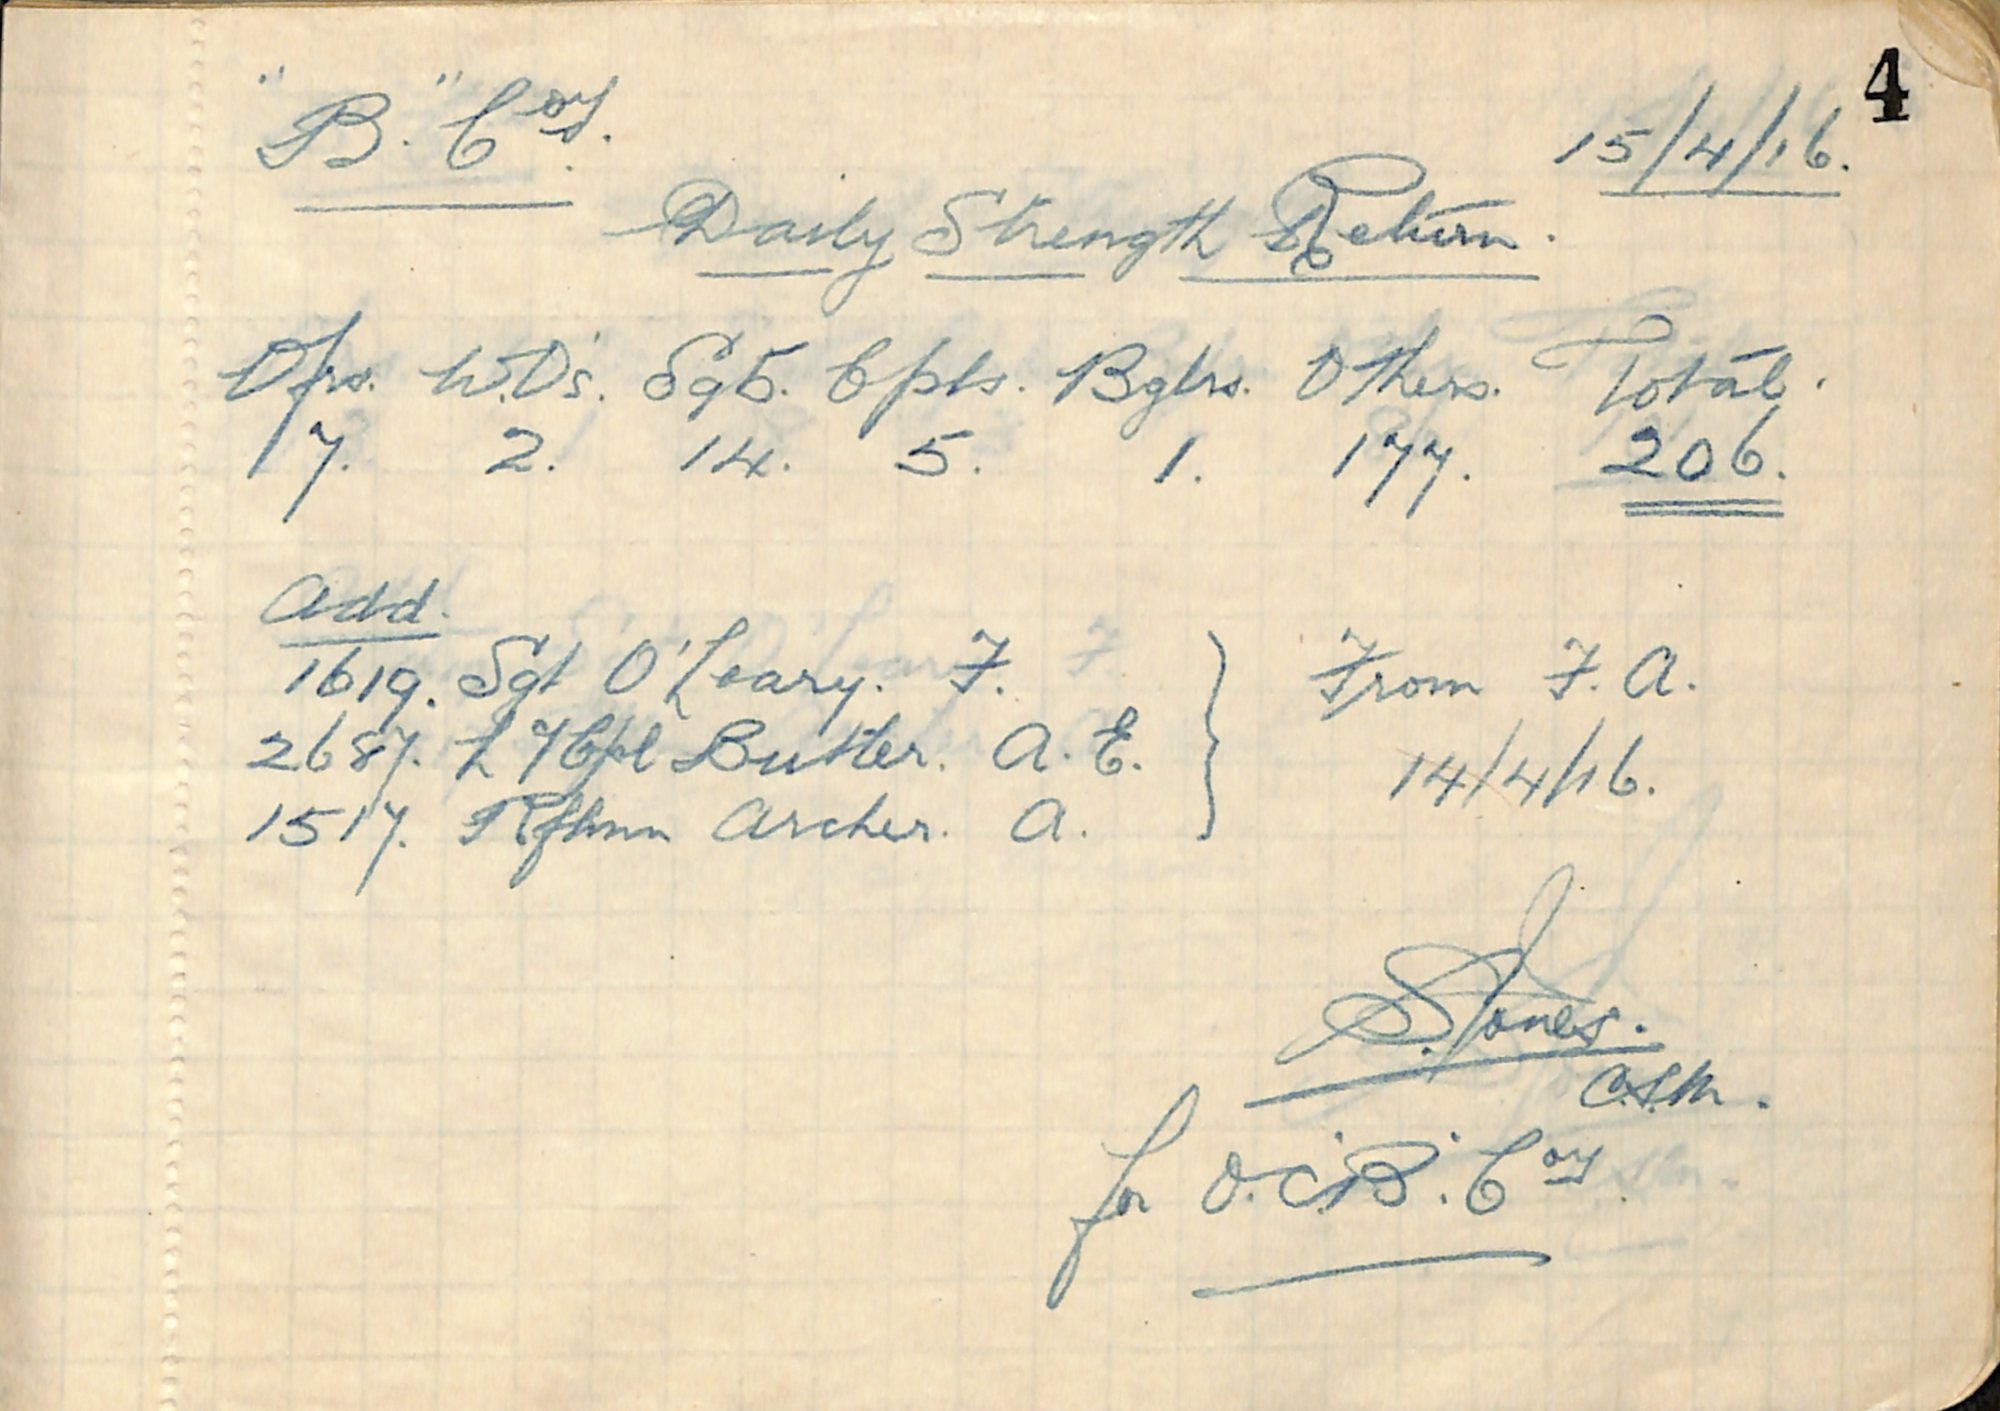 4
"B." Coy. 15/4/16.
Daily Strength Return.
Ofrs. W.O's. Sgts. Cpls. Bglrs. Others. Total.
7. 2. 14. 5. 1. 177. 206.
Add.
1619. Sgt O'Leary. F.
2687. L/Cpl Butler. A. E.
1517. Rflmn Archer. A.
From F. A.
14/4/16.
S. Jones.
C.S.M.
for O.C. "B". Coy